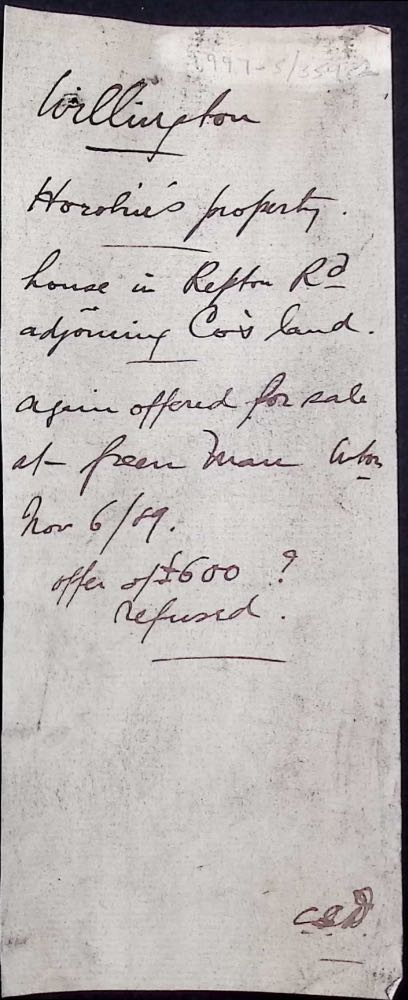 Willington
Horobin's property.
house in Repton Rd
adjoining Co's land.
again offered for sale
at Green Man Wton
Nov 6/89.
offer of £600 ?
refused.